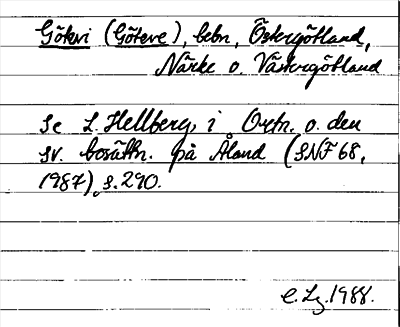 Götevi (Göteve), bebn, Östergötland,
Närke o. Västergötland
Se L. Hellberg, i Ortn. o. den
sv. bosättn. på Åland (SNF 68,
1987), s. 290.
C. Lg. 1988.